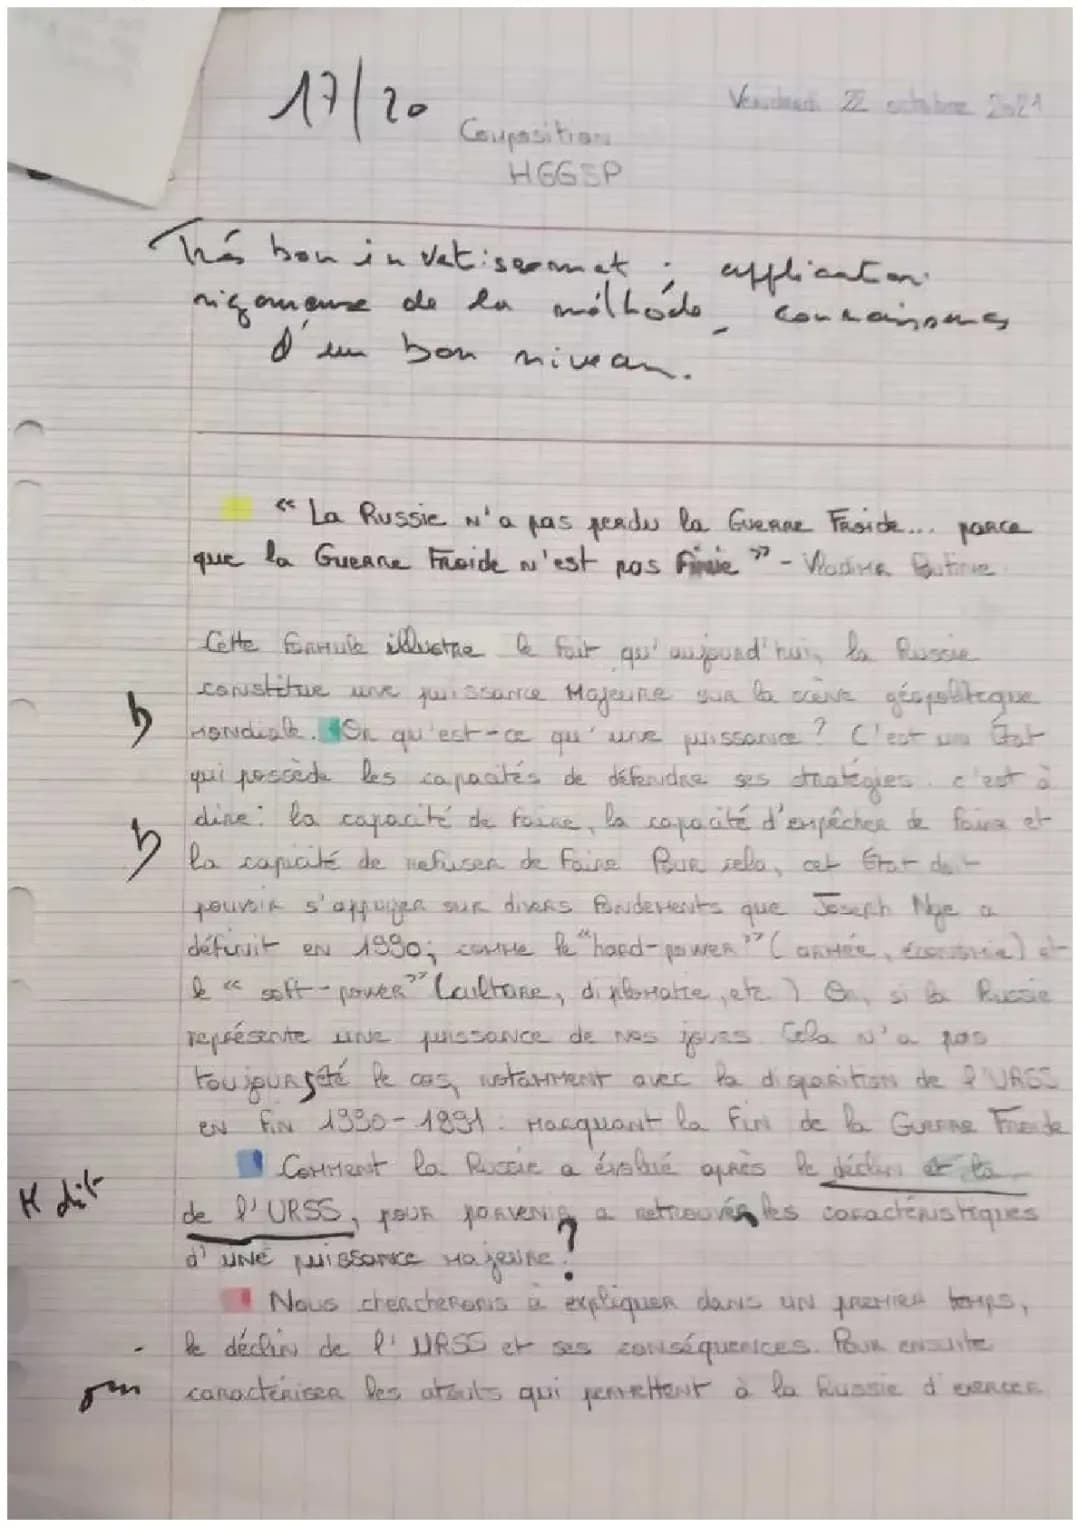 17/20
Vendredi 22 octobre 2021
Composition
HGGSP
Très bon investissement ; application
rigoureuse de la méthode, connaissances
d'un bon niveau.
" La Russie n'a pas perdu la Guerre Froide... parce
que la Guerre Froide n'est pas finie " - Vladimir Putine
Cette formule illustre le fait qu'aujourd'hui, la Russie
constitue une puissance majeure sur la scène géopolitique
b mondiale. Or qu'est-ce qu'une puissance ? C'est un État
qui possède les capacités de défendre ses stratégies. c'est à
dire : la capacité de faire, la capacité d'empêcher de faire et
b la capacité de refuser de faire Pour cela, cet État doit
pouvoir s'appuyer sur divers fondements que Joseph Nye a
définit en 1990; comme le "hard-power" (armée, économie) et
le « soft-power" (culture, diplomatie, etc.) Or, si la Russie
représente une puissance de nos jours. Cela n'a pas
toujours été le cas, notamment avec la disparition de l'URSS
en fin 1990-1991. Marquant la fin de la Guerre Froide
Comment la Russie a évolué après le déclin et la
M dit de l'URSS, pour parvenir a retrouver les caractéristiques
d'une puissance majeure ?
Nous chercherons à expliquer dans un premier temps,
le déclin de l'URSS et ses conséquences. Pour ensuite
caractériser les atouts qui permettent à la Russie d'exercer